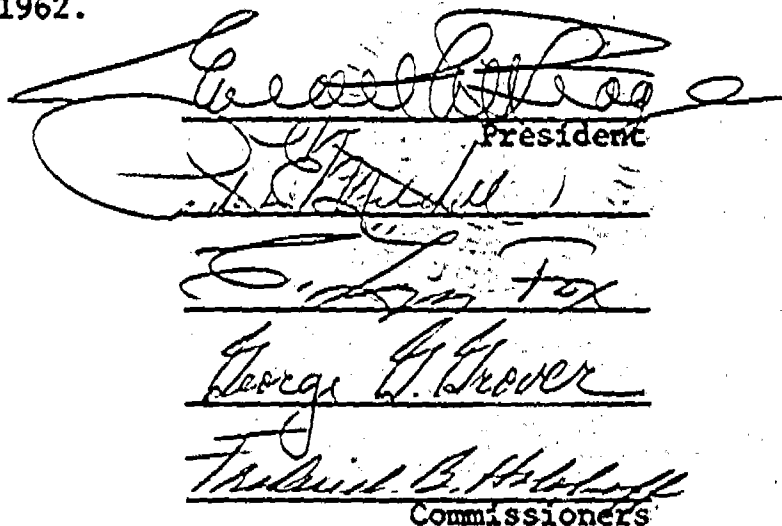 1962.
President
E. Lyn Fox
George G. Grover
Frederick B. Holoboff
Commissioners